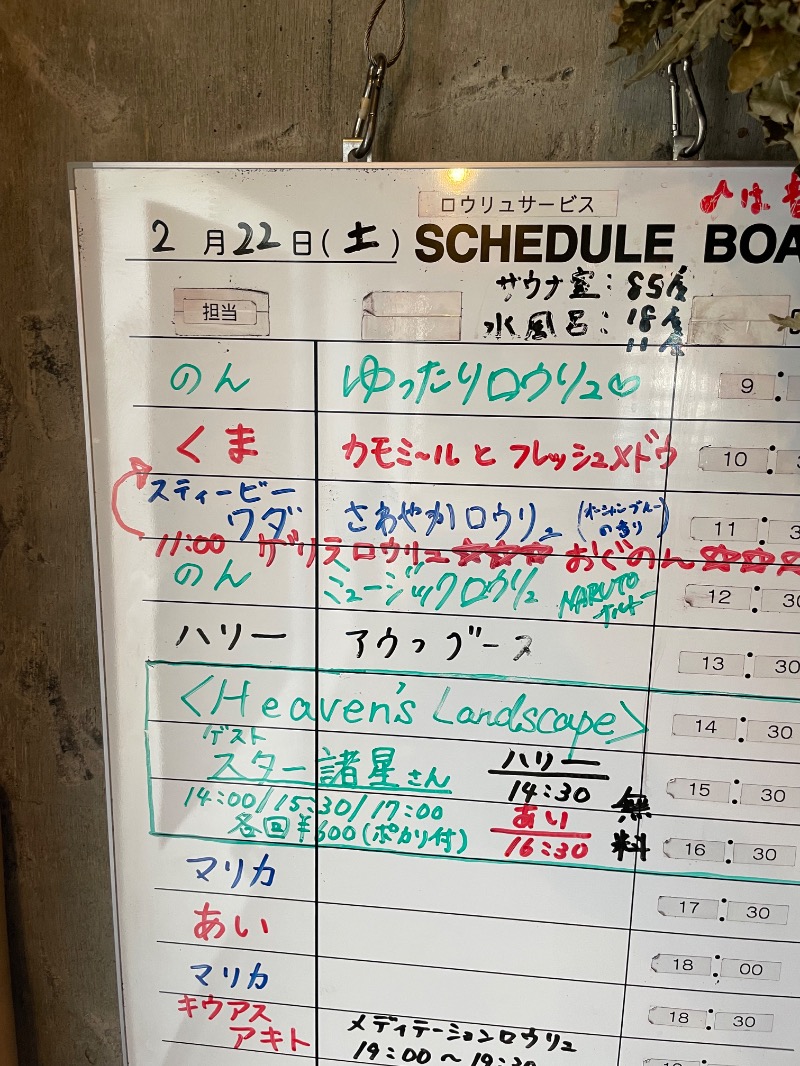 ロウリュサービス
2月22日(土) SCHEDULE BOA
サウナ室：85度
水風呂：18度
11度
担当
のん ゆったりロウリュ♡ 9:
くま カモミールとフレッシュメドウ 10:3
スティービー
ワダ さわやかロウリュ (オーシャンブルーの香り) 11:3
11:00 ゲリラロウリュ☆☆☆ おぐのん☆☆☆
のん ミュージックロウリュ NARUTO 12:30
ハリー アウフグース 13:30
<Heaven's Landscape> 14:30
ゲスト
スター諸星さん ハリー
14:30 無料 15:30
14:00/15:30/17:00 あい
各回¥600(ポカリ付) 16:30 16:30
マリカ 17:30
あい 18:00
マリカ 18:30
キウアス
アキト メディテーションロウリュ
19:00〜19:30